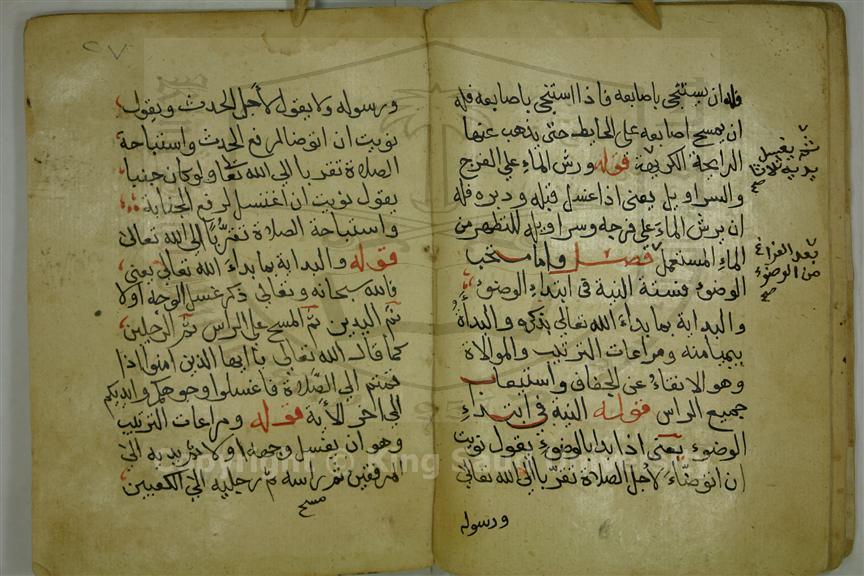 فله ان يستنجي باصابعه فاذا استنجي باصابعه فله
ان يمسح اصابعه علي الحايط حتي يذهب عنها
الرايحة الكريهة قوله ورش الماء علي الفرج
والسراويل يعني اذا غسل قبله ودبره فله
ان يرش الماء علي فرجه وسراويله للتطهر من
الماء المستعمل فصل واما مستحب
الوضوء فستة النية في ابتداء الوضوء
والبداية بما بداء الله تعالي بذكره والبداة
بميامنه ومراعات الترتيب والموالاة
وهو الابقاء عن الجفاف واستيعاب
جميع الراس قوله النية في ابتداء
الوضوء يعني اذا بدا بالوضوء يقول نويت
ان اتوضاء لاجل الصلاة تقربا الي الله تعالي
ورسوله
ثم يغسل
يديه ثلاثا
صح
بعد الفراغ
من الوضوء
صح
٢٧
ورسوله ولا يقول لاجل الحدث ويقول
نويت ان اتوضا لرفع الحدث واستباحة
الصلاة تقربا الي الله تعا ولو كان جنبا
يقول نويت ان اغتسل لرفع الجنابة
واستباحة الصلاة تقربا الي الله تعالي
قوله والبداية بما بداء الله تعالي يعني
فالله سبحانه وتعالي ذكر غسل الوجه اولا
ثم اليدين ثم المسح علي الراس ثم الرجلين
كما قال الله تعالي يا ايها الذين امنوا اذا
قمتم الي الصلاة فاغسلوا وجوهكم وايديكم
الي اخر الاية قوله ومراعات الترتيب
وهو ان يغسل وجهه اولا ثم يديه الي
المرفقين ثم راسه ثم رجليه الي الكعبين
مسح
Copyright © King Saud University